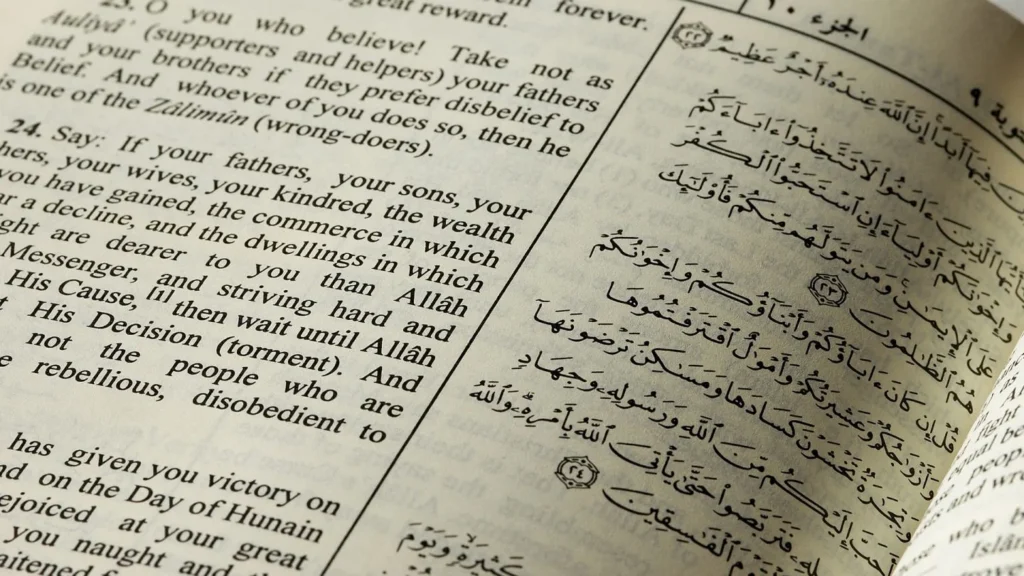 forever.
great reward.
23. O you who believe! Take not as
Auliyâ' (supporters and helpers) your fathers
and your brothers if they prefer disbelief to
Belief. And whoever of you does so, then he
is one of the Zâlimûn (wrong-doers).
24. Say: If your fathers, your sons, your
your wives, your kindred, the wealth
you have gained, the commerce in which
a decline, and the dwellings in which
are dearer to you than Allâh
Messenger, and striving hard and
His Cause, [1] then wait until Allâh
His Decision (torment). And
not the people who are
rebellious, disobedient to
has given you victory on
on the Day of Hunain
rejoiced at your great
you naught and
الجزء ١٠
٩
فِيهَآ أَبَدًا إِنَّ ٱللَّهَ عِندَهُۥٓ أَجْرٌ عَظِيمٌ ٢٢
ٱلَّذِينَ ءَامَنُوا۟ لَا تَتَّخِذُوٓا۟ ءَابَآءَكُمْ
وَإِخْوَٰنَكُمْ أَوْلِيَآءَ إِنِ ٱسْتَحَبُّوا۟ ٱلْكُفْرَ
عَلَى ٱلْإِيمَٰنِ وَمَن يَتَوَلَّهُم مِّنكُمْ فَأُو۟لَٰٓئِكَ
هُمُ ٱلظَّٰلِمُونَ ٢٣
قُلْ إِن كَانَ ءَابَآؤُكُمْ وَأَبْنَآؤُكُمْ وَإِخْوَٰنُكُمْ
وَأَزْوَٰجُكُمْ وَعَشِيرَتُكُمْ وَأَمْوَٰلٌ ٱقْتَرَفْتُمُوهَا
وَتِجَٰرَةٌ تَخْشَوْنَ كَسَادَهَا وَمَسَٰكِنُ تَرْضَوْنَهَآ
أَحَبَّ إِلَيْكُم مِّنَ ٱللَّهِ وَرَسُولِهِۦ وَجِهَادٍ
فَتَرَبَّصُوا۟ حَتَّىٰ يَأْتِىَ ٱللَّهُ بِأَمْرِهِۦ وَٱللَّهُ
ٱلْفَٰسِقِينَ ٢٤
كَثِيرَةٍ وَيَوْمَ
who
Islâm